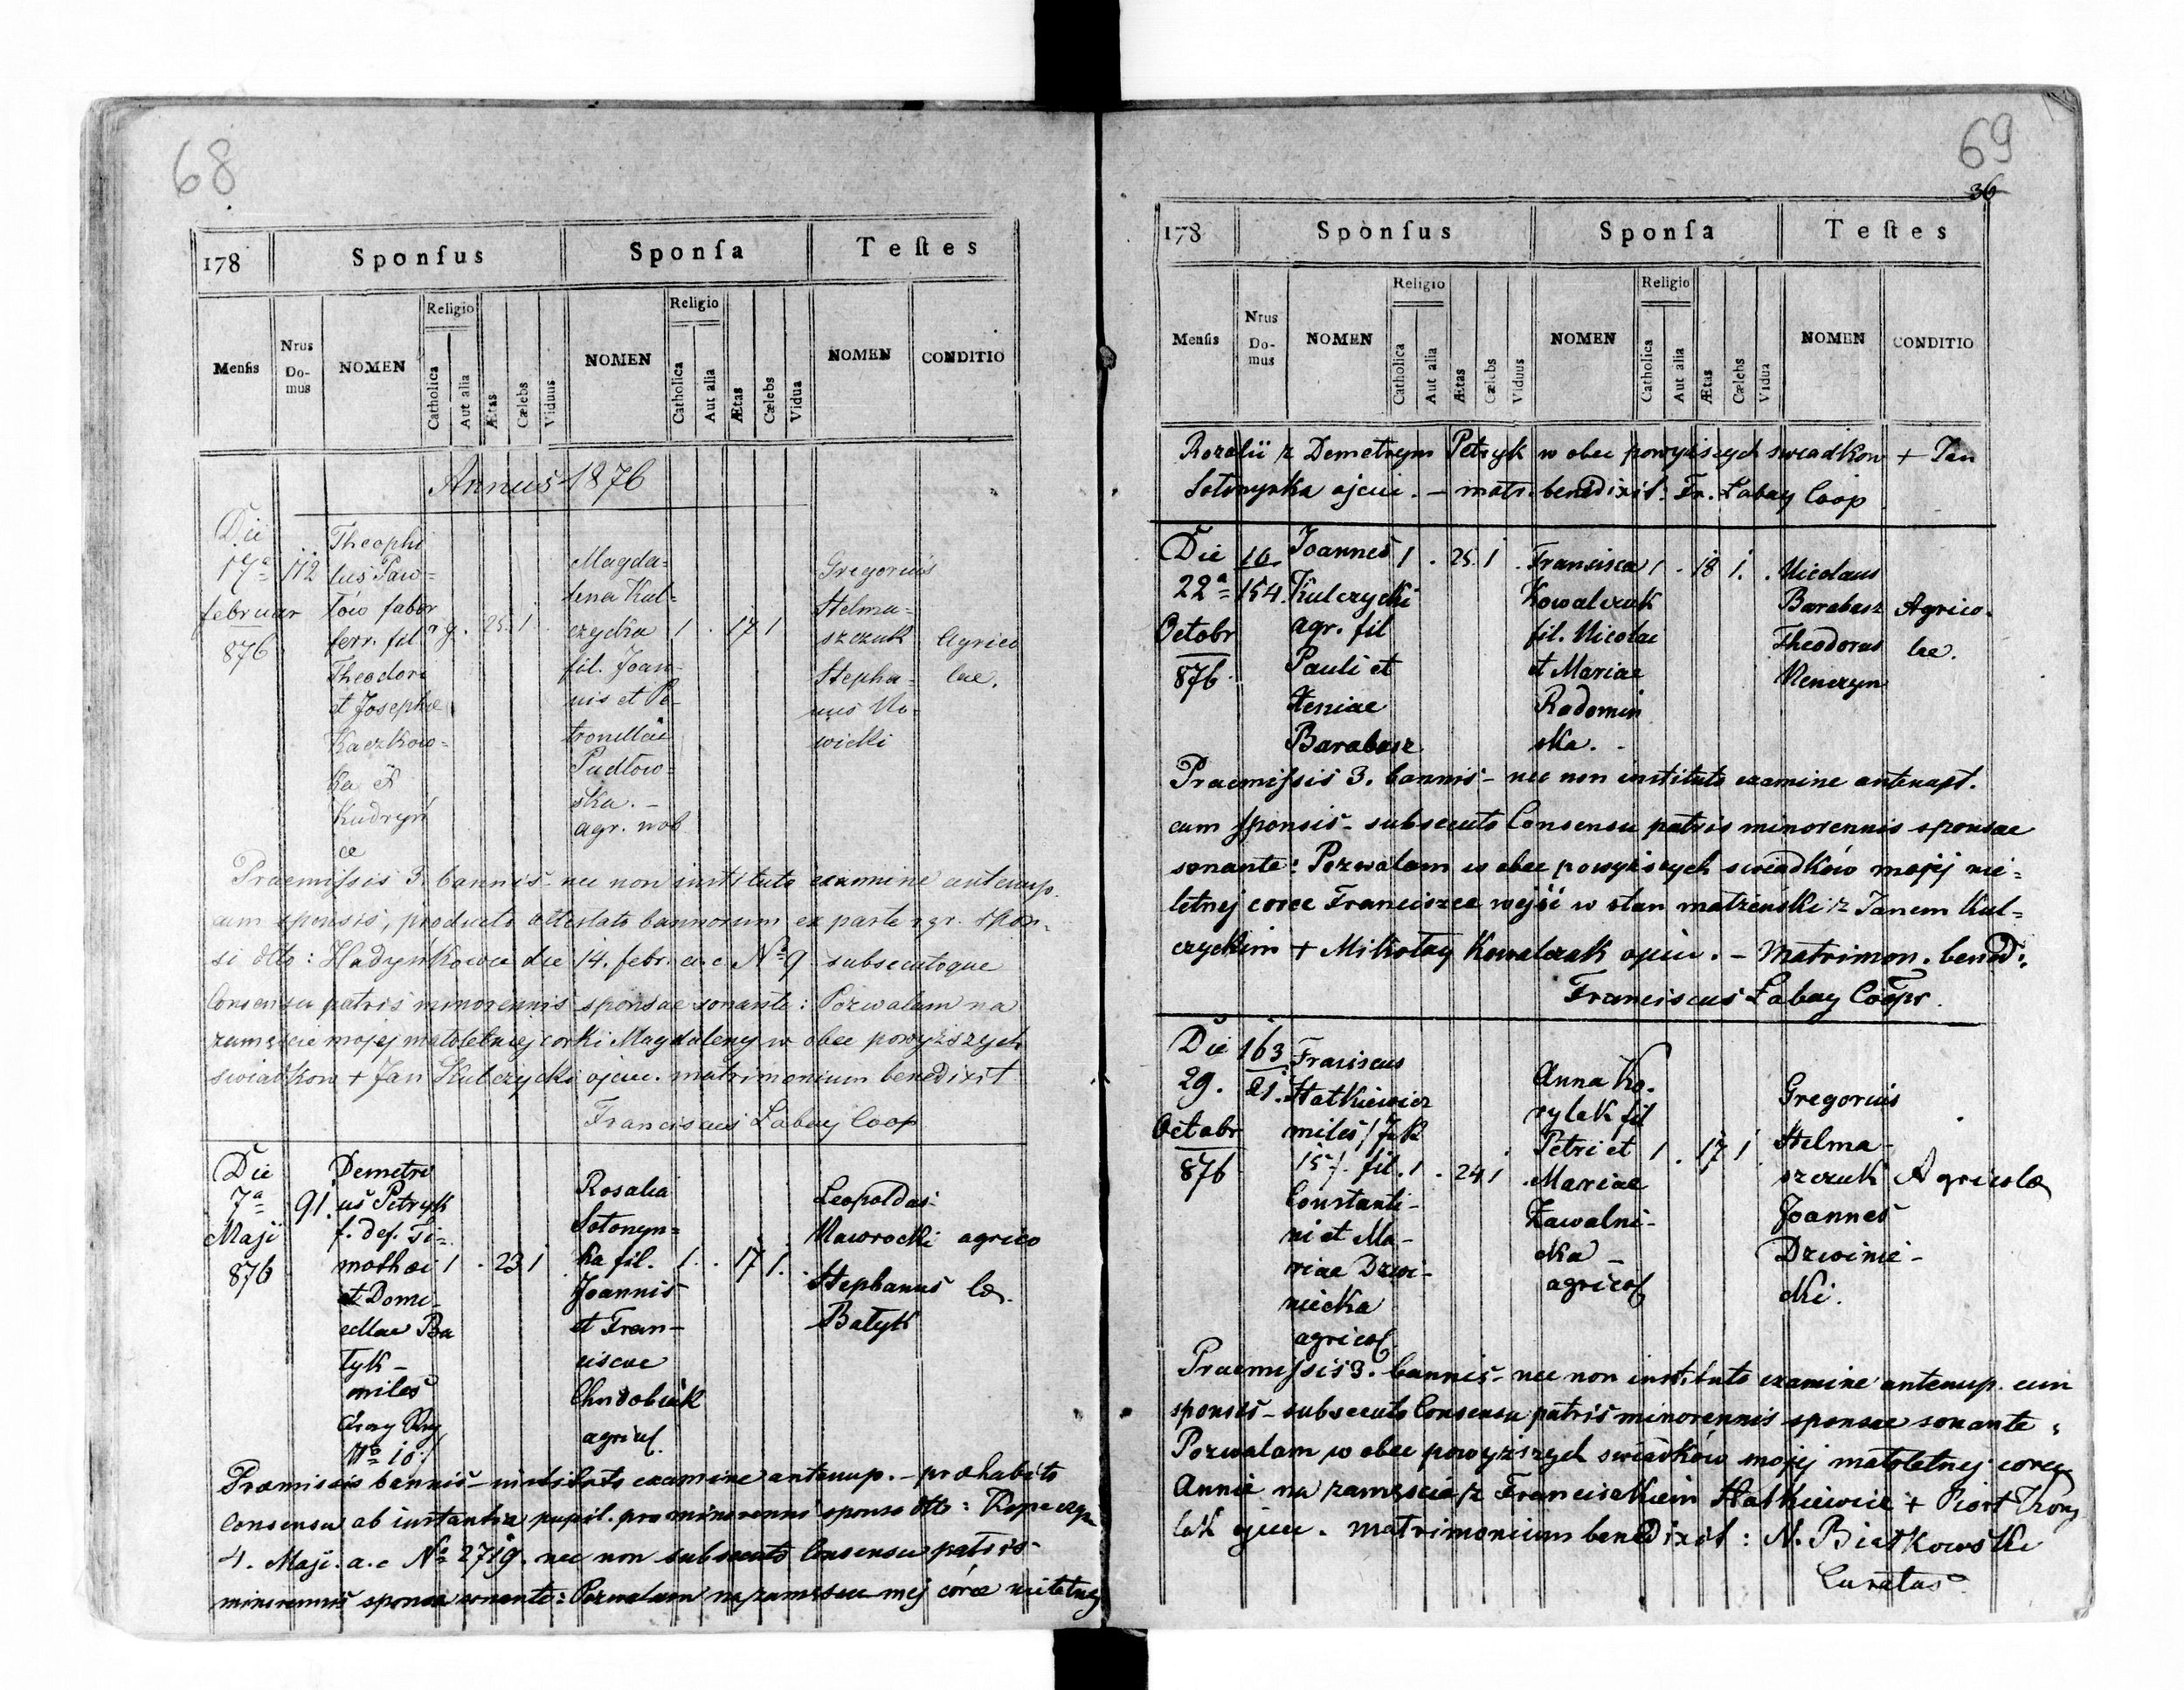 68
178 Sponsus Sponsa Testes
Mensis Nrus Domus NOMEN Religio Catholica Aut alia Ætas Cælebs Viduus NOMEN Religio Catholica Aut alia Ætas Cælebs Vidua NOMEN CONDITIO
Annus 1876
Die
17a
februar
876
112
Theophi
lus Paw=
łów faber
ferr. fil.
Theodori
et Josephae
Kaczkow=
ka
Kudryń
ce
r g. 25. 1
Magda=
lena Kul=
czycka
fil. Joan-
nis et Pe-
tronellae
Pudłow=
ska. -
agr. nob
1 . 17 1
Gregorius
Stelma-
szczuk
Stepha-
nus No-
wicki
Agrico
lae.
Praemissis 3. bannis - nec non instituto examine antenup.
cum sponsis, producto attestato bannorum ex parte r gr. spon-
si dtto: Hadyńkowce die 14. febr. a. c. No 9 subsecutoque
Consensu patris minorennis sponsae sonante: Pozwalam na
zamęście mojej małoletniej corki Magdaleny w obec powyższych
swiadkow + Jan Kulczycki ojciec. matrimonium benedixit
Franciscus Łabay Coop
Die
7a
Maji
876
91
Demetri
us Petryk
f. def. Ti=
mothei
et Domi-
cellae Ba
łyk -
miles
No 10
1 . 23 1
Rosalia
Sotonyn=
ka fil.
Joannis
et Fran-
ciscae
Chudobiak
agricol.
1 . 17 1.
Leopoldus
Nawrocki
Stephanus
Bałyk
agrico
lae.
Praemissis bannis - instituto examine antenup. - prohabito
Consensu ab instantia pupil. pro minorenni sponso dtto:
4. Maji. a. c No 2719. nec non subsecuto Consensu patris
minorennis sponsae sonante: Pozwalam na zamęscie mej córce nieletniej
69
36
178 Sponsus Sponsa Testes
Mensis Nrus Domus NOMEN Religio Catholica Aut alia Ætas Cælebs Viduus NOMEN Religio Catholica Aut alia Ætas Cælebs Vidua NOMEN CONDITIO
Rozalii z Demetrym Petryk w obec powyższych swiadkow + Jan
Sotonynka ojciec. - matr. benedixit. Fr. Łabay Coop
Die
22a
Octobr
876
10
154.
Joannes
Kulczycki
agr. fil
Pauli et
Xeniae
Barabasz
1 . 25. 1
Francisca
Kowalczuk
fil. Nicolai
et Mariae
Radomin
ska. -
1 . 18 1.
Nicolaus
Barabasz
Theodorus
Nenczyn
Agrico-
lae.
Praemissis 3. bannis - nec non instituto examine antenupt.
cum sponsis - subsecuto Consensu patris minorennis sponsae
sonante: Pozwalam w obec powyższych swiadków mojej nie=
letnej corce Franciszce wejść w stan małżeński z Janem Kul=
czyckim + Mikołay Kowalczuk ojciec. - Matrimon. bened:
Franciscus Łabay Coopr.
Die
29.
Octobr
876
163
21.
Franiscus
Hatkiewicz
miles
15 fil.
Constanti-
ni et Ma-
riae Dzwi-
niecka
agricol
1 . 24 1
Anna Ko-
rylak fil
Petri et
Mariae
Zawalni-
cka -
agricol
1 . 17 1
Gregorius
Stelma-
szczuk
Joannes
Dzwinie-
cki.
Agricolae
Praemissis 3. bannis - nec non instituto examine antenup. cum
sponsis - subsecuto Consensu patris minorennis sponsae sonante:
Pozwalam w obec powyższych swiadków mojej małoletnej corce
Annie na zamęscie z Franciszkiem Hatkiewicz + Piotr
lak ojciec. Matrimonium benedixit: N. Białkowski
Curatus